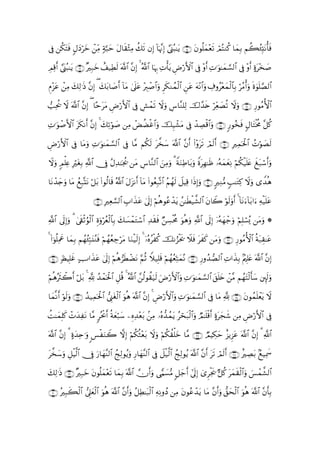 فَأُنَبِّئُكُم بِمَا كُنتُمْ تَعْمَلُونَ ﴿١٥﴾ يَٰبُنَىَّ إِنَّهَآ إِن تَكُ مِثْقَالَ حَبَّةٍ مِّنْ خَرْدَلٍ فَتَكُن فِى
صَخْرَةٍ أَوْ فِى ٱلسَّمَٰوَٰتِ أَوْ فِى ٱلْأَرْضِ يَأْتِ بِهَا ٱللَّهُ ۚ إِنَّ ٱللَّهَ لَطِيفٌ خَبِيرٌ ﴿١٦﴾ يَٰبُنَىَّ أَقِمِ
ٱلصَّلَوٰةَ وَأْمُرْ بِٱلْمَعْرُوفِ وَٱنْهَ عَنِ ٱلْمُنكَرِ وَٱصْبِرْ عَلَىٰ مَآ أَصَابَكَ ۖ إِنَّ ذَٰلِكَ مِنْ عَزْمِ
ٱلْأُمُورِ ﴿١٧﴾ وَلَا تُصَعِّرْ خَدَّكَ لِلنَّاسِ وَلَا تَمْشِ فِى ٱلْأَرْضِ مَرَحًا ۖ إِنَّ ٱللَّهَ لَا يُحِبُّ
كُلَّ مُخْتَالٍ فَخُورٍ ﴿١٨﴾ وَٱقْصِدْ فِى مَشْيِكَ وَٱغْضُضْ مِن صَوْتِكَ ۚ إِنَّ أَنكَرَ ٱلْأَصْوَٰتِ
لَصَوْتُ ٱلْحَمِيرِ ﴿١٩﴾ أَلَمْ تَرَوْا۟ أَنَّ ٱللَّهَ سَخَّرَ لَكُم مَّا فِى ٱلسَّمَٰوَٰتِ وَمَا فِى ٱلْأَرْضِ
وَأَسْبَغَ عَلَيْكُمْ نِعَمَهُۥ ظَٰهِرَةً وَبَاطِنَةً ۗ وَمِنَ ٱلنَّاسِ مَن يُجَٰدِلُ فِى ٱللَّهِ بِغَيْرِ عِلْمٍ وَلَا
هُدًى وَلَا كِتَٰبٍ مُّنِيرٍ ﴿٢٠﴾ وَإِذَا قِيلَ لَهُمُ ٱتَّبِعُوا۟ مَآ أَنزَلَ ٱللَّهُ قَالُوا۟ بَلْ نَتَّبِعُ مَا وَجَدْنَا
عَلَيْهِ ءَابَآءَنَآ ۚ أَوَلَوْ كَانَ ٱلشَّيْطَٰنُ يَدْعُوهُمْ إِلَىٰ عَذَابِ ٱلسَّعِيرِ ﴿٢١﴾
۞ وَمَن يُسْلِمْ وَجْهَهُۥٓ إِلَى ٱللَّهِ وَهُوَ مُحْسِنٌ فَقَدِ ٱسْتَمْسَكَ بِٱلْعُرْوَةِ ٱلْوُثْقَىٰ ۗ وَإِلَى ٱللَّهِ
عَٰقِبَةُ ٱلْأُمُورِ ﴿٢٢﴾ وَمَن كَفَرَ فَلَا يَحْزُنكَ كُفْرُهُۥٓ ۚ إِلَيْنَا مَرْجِعُهُمْ فَنُنَبِّئُهُم بِمَا عَمِلُوٓا۟ ۚ
إِنَّ ٱللَّهَ عَلِيمٌۢ بِذَاتِ ٱلصُّدُورِ ﴿٢٣﴾ نُمَتِّعُهُمْ قَلِيلًا ثُمَّ نَضْطَرُّهُمْ إِلَىٰ عَذَابٍ غَلِيظٍ ﴿٢٤﴾
وَلَئِن سَأَلْتَهُم مَّنْ خَلَقَ ٱلسَّمَٰوَٰتِ وَٱلْأَرْضَ لَيَقُولُنَّ ٱللَّهُ ۚ قُلِ ٱلْحَمْدُ لِلَّهِ ۚ بَلْ أَكْثَرُهُمْ
لَا يَعْلَمُونَ ﴿٢٥﴾ لِلَّهِ مَا فِى ٱلسَّمَٰوَٰتِ وَٱلْأَرْضِ ۚ إِنَّ ٱللَّهَ هُوَ ٱلْغَنِىُّ ٱلْحَمِيدُ ﴿٢٦﴾ وَلَوْ أَنَّمَا
فِى ٱلْأَرْضِ مِن شَجَرَةٍ أَقْلَٰمٌ وَٱلْبَحْرُ يَمُدُّهُۥ مِنۢ بَعْدِهِۦ سَبْعَةُ أَبْحُرٍ مَّا نَفِدَتْ كَلِمَٰتُ
ٱللَّهِ ۗ إِنَّ ٱللَّهَ عَزِيزٌ حَكِيمٌ ﴿٢٧﴾ مَّا خَلْقُكُمْ وَلَا بَعْثُكُمْ إِلَّا كَنَفْسٍ وَٰحِدَةٍ ۗ إِنَّ ٱللَّهَ
سَمِيعٌۢ بَصِيرٌ ﴿٢٨﴾ أَلَمْ تَرَ أَنَّ ٱللَّهَ يُولِجُ ٱلَّيْلَ فِى ٱلنَّهَارِ وَيُولِجُ ٱلنَّهَارَ فِى ٱلَّيْلِ وَسَخَّرَ
ٱلشَّمْسَ وَٱلْقَمَرَ كُلٌّ يَجْرِىٓ إِلَىٰٓ أَجَلٍ مُّسَمًّى وَأَنَّ ٱللَّهَ بِمَا تَعْمَلُونَ خَبِيرٌ ﴿٢٩﴾ ذَٰلِكَ
بِأَنَّ ٱللَّهَ هُوَ ٱلْحَقُّ وَأَنَّ مَا يَدْعُونَ مِن دُونِهِ ٱلْبَٰطِلُ وَأَنَّ ٱللَّهَ هُوَ ٱلْعَلِىُّ ٱلْكَبِيرُ ﴿٣٠﴾